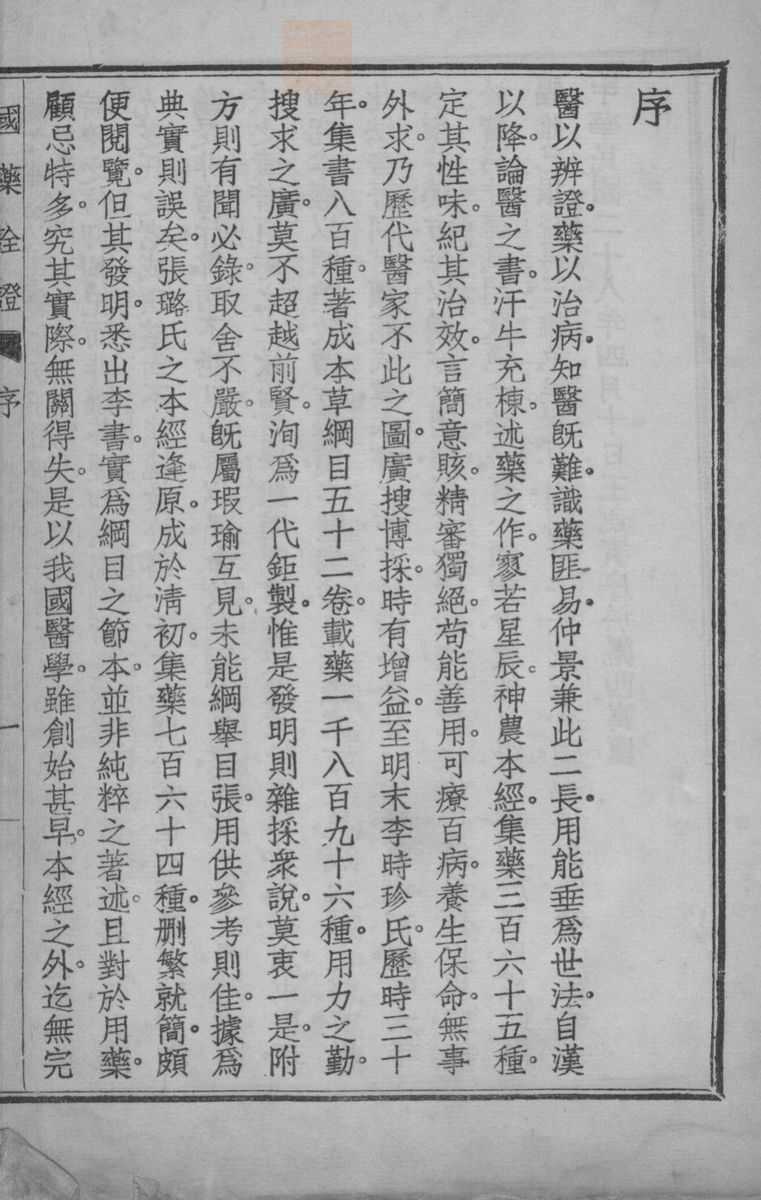 序
醫以辨證。藥以治病。知醫旣難。識藥匪易。仲景兼此二長。用能垂爲世法。自漢
以降。論醫之書。汗牛充棟。述藥之作。寥若星辰。神農本經。集藥三百六十五種。
定其性味。紀其治效。言簡意賅。精審獨絕。苟能善用。可療百病。養生保命。無事
外求。乃歷代醫家不此之圖。廣搜博採。時有增益。至明末李時珍氏。歷時三十
年。集書八百種。著成本草綱目五十二卷。載藥一千八百九十六種。用力之勤。
搜求之廣。莫不超越前賢。洵爲一代鉅製。惟是發明則雜採衆說。莫衷一是。附
方則有聞必錄。取舍不嚴。旣屬瑕瑜互見。未能綱舉目張。用供參考則佳。據爲
典實則誤矣。張璐氏之本經逢原。成於淸初。集藥七百六十四種。删繁就簡。頗
便閱覽。但其發明。悉出李書。實爲綱目之節本。並非純粹之著述。且對於用藥。
顧忌特多。究其實際。無關得失。是以我國醫學。雖創始甚早。本經之外。迄無完
國藥詮證 序 一